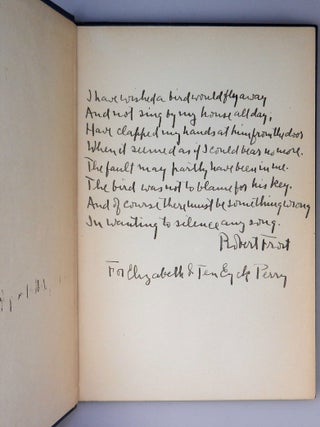 I have wished a bird would fly away
And not sing by my house all day,
Have clapped my hands at him from the door
When it seemed as if I could bear no more.
The fault may partly have been in me.
The bird was not to blame for his key.
And of course there must be something wrong
In wanting to silence any song.
Robert Frost
For Elizabeth & Ten Eyck Perry